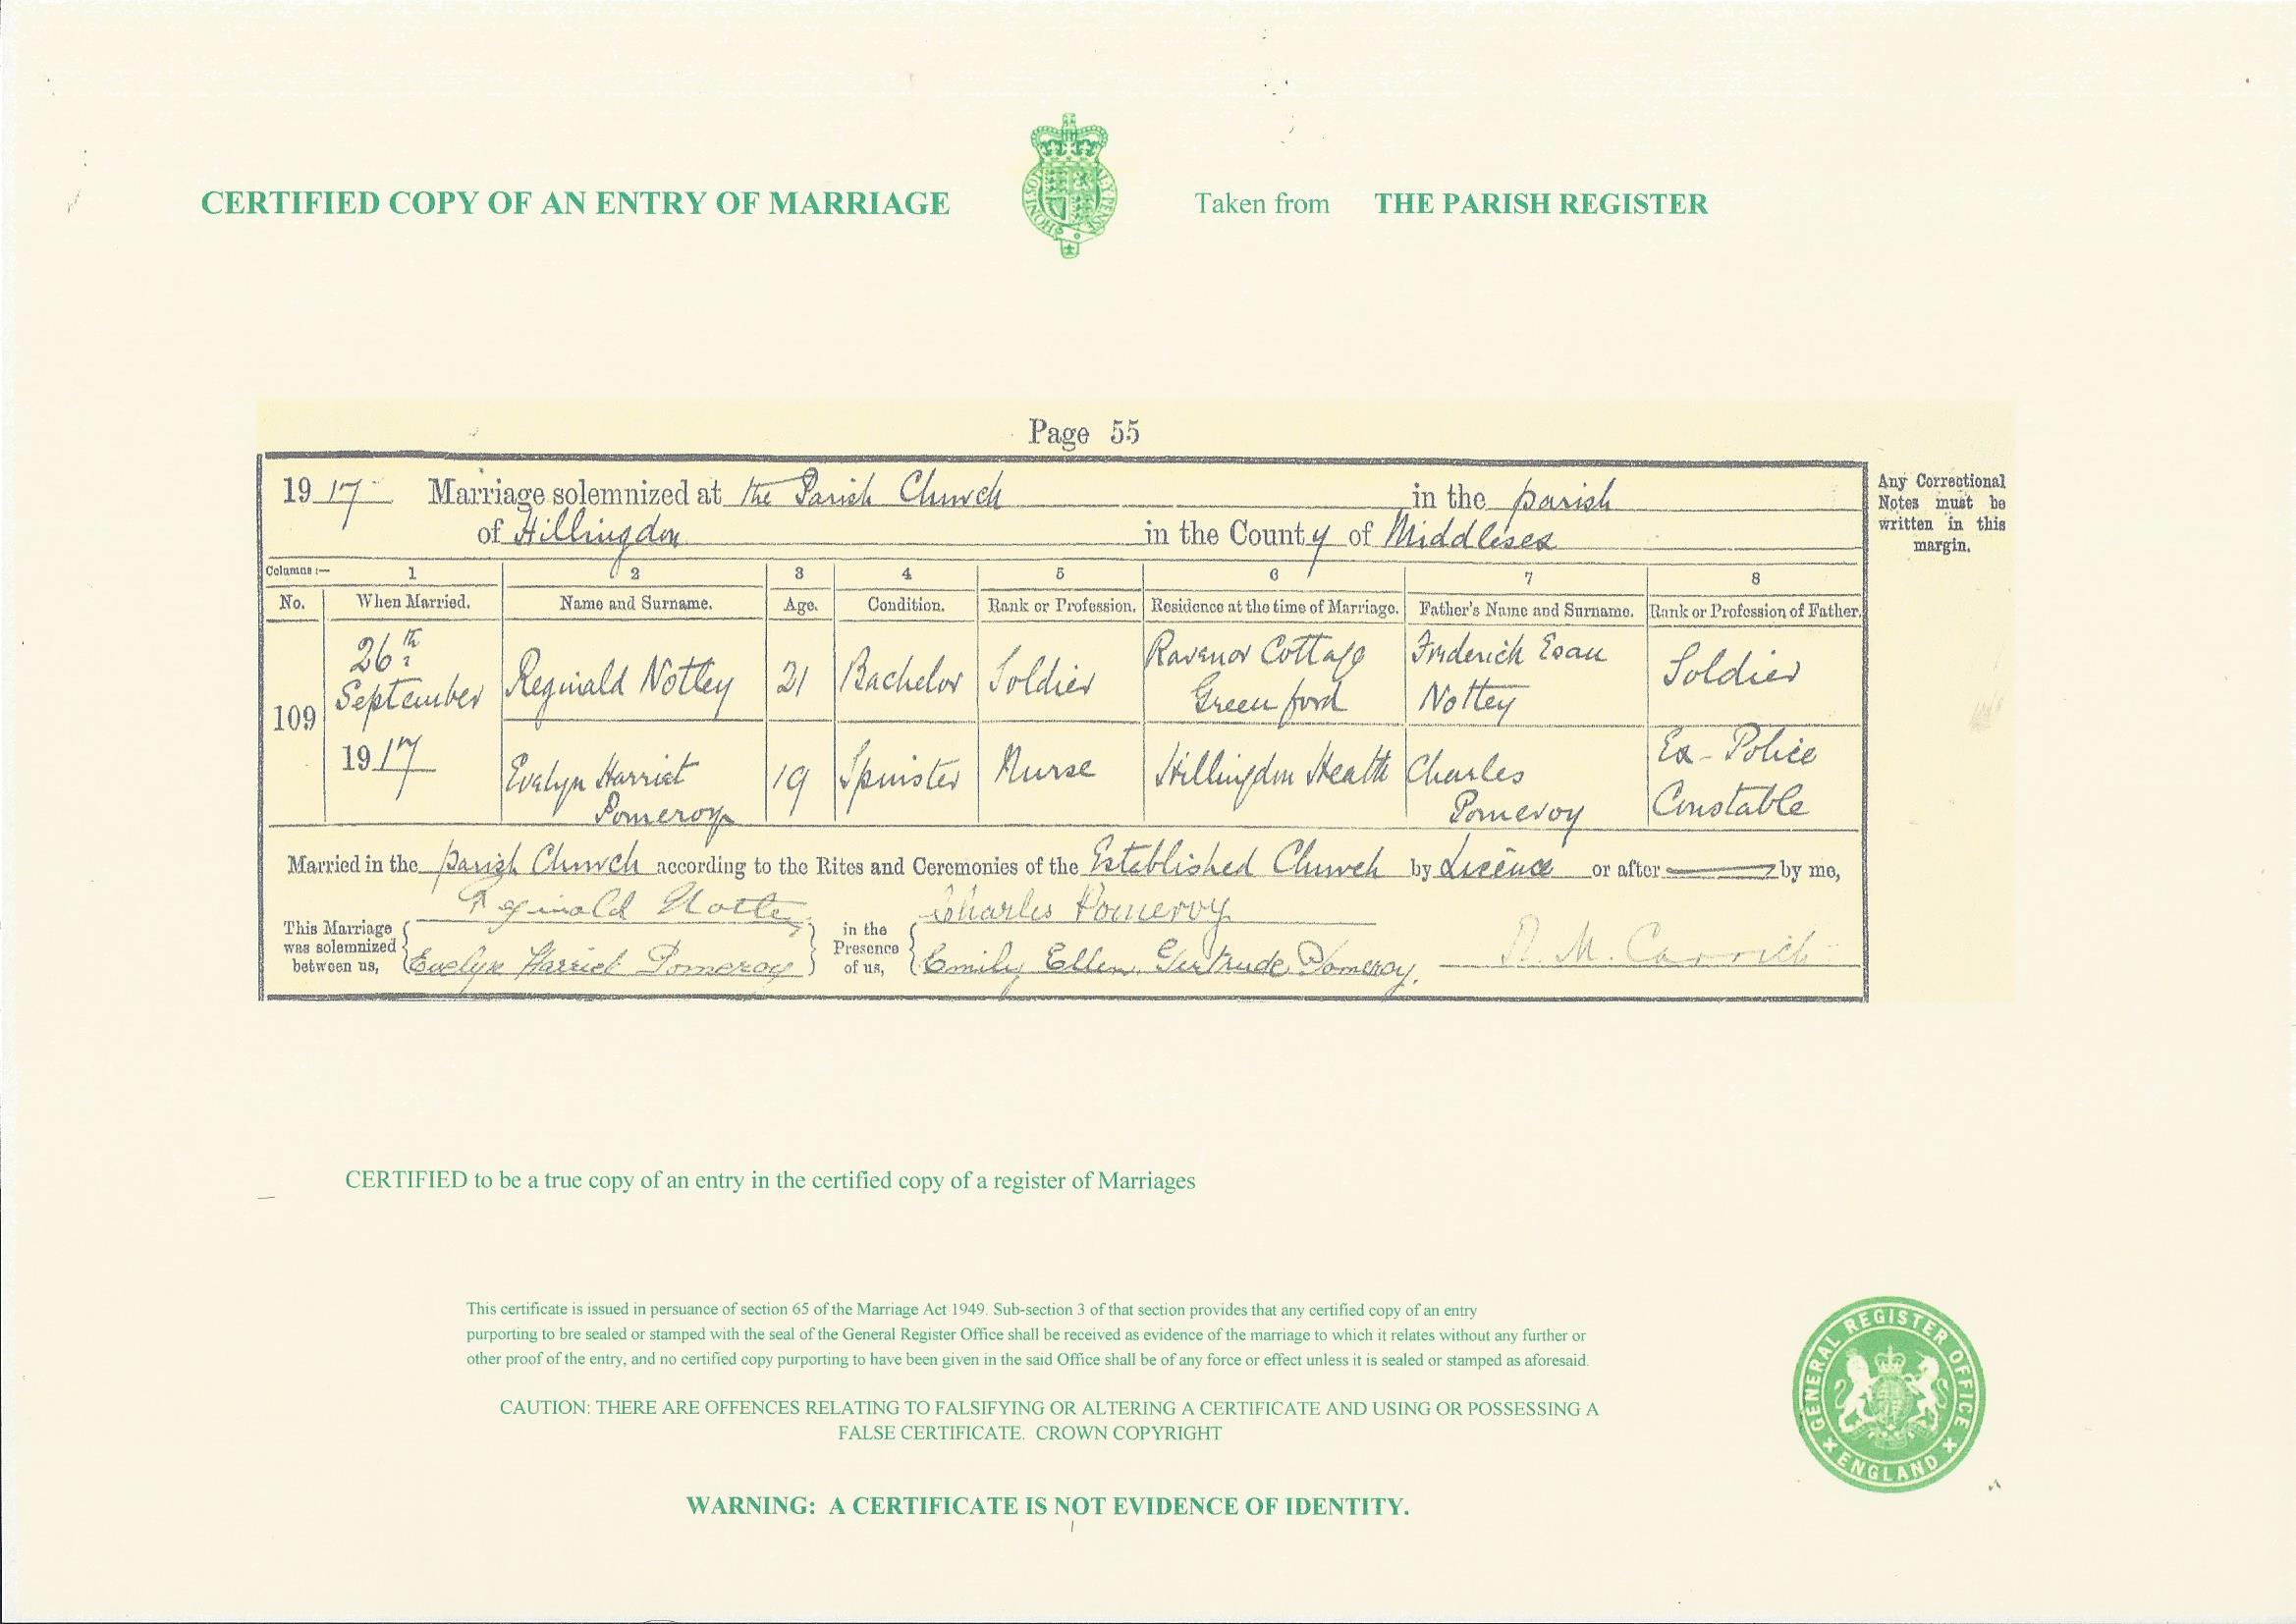 CERTIFIED COPY OF AN ENTRY OF MARRIAGE Taken from THE PARISH REGISTER
Page 55
1917 Marriage solemnized at the Parish Church in the parish
of Hillingdon in the County of Middlesex
Any Correctional
Notes must be
written in this
margin.
Columns :— 1 2 3 4 5 6 7 8
No. When Married. Name and Surname. Age. Condition. Rank or Profession. Residence at the time of Marriage. Father's Name and Surname. Rank or Profession of Father.
109
26th
September
1917
Reginald Notley 21 Bachelor Soldier Ravenor Cottage
Greenford
Frederick Esau
Notley
Soldier
Evelyn Harriet
Pomeroy
19 Spinster Nurse Hillingdon Heath Charles
Pomeroy
Ex-Police
Constable
Married in the parish Church according to the Rites and Ceremonies of the Established Church by Licence or after by me,
This Marriage
was solemnized
between us,
Reginald Notley
Evelyn Harriet Pomeroy
in the
Presence
of us,
Charles Pomeroy
Emily Ellen Gertrude Pomeroy.
CERTIFIED to be a true copy of an entry in the certified copy of a register of Marriages
This certificate is issued in persuance of section 65 of the Marriage Act 1949. Sub-section 3 of that section provides that any certified copy of an entry
purporting to bre sealed or stamped with the seal of the General Register Office shall be received as evidence of the marriage to which it relates without any further or
other proof of the entry, and no certified copy purporting to have been given in the said Office shall be of any force or effect unless it is sealed or stamped as aforesaid.
CAUTION: THERE ARE OFFENCES RELATING TO FALSIFYING OR ALTERING A CERTIFICATE AND USING OR POSSESSING A
FALSE CERTIFICATE. CROWN COPYRIGHT
WARNING: A CERTIFICATE IS NOT EVIDENCE OF IDENTITY.
GENERAL REGISTER OFFICE
ENGLAND